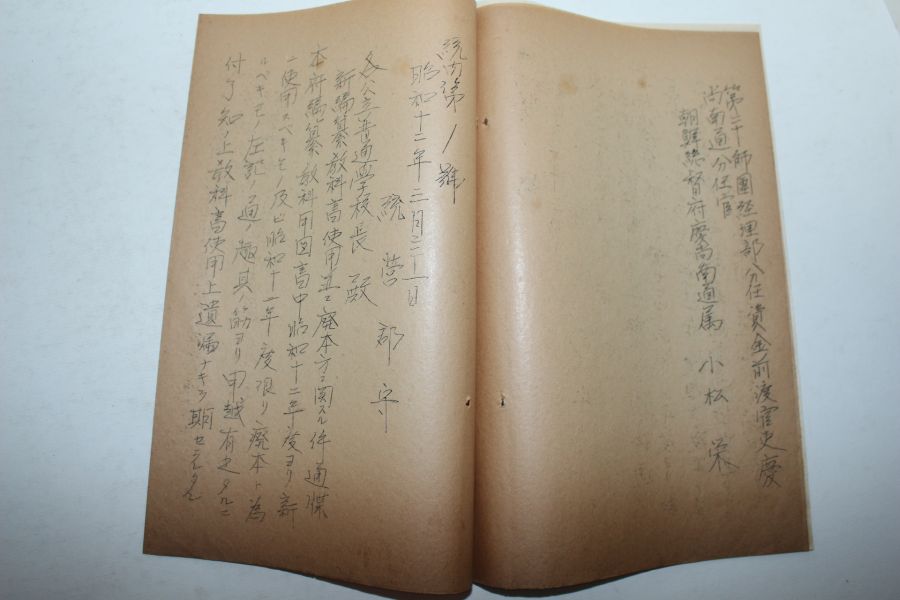 第二十師團経理部分任資金前渡官吏慶
尚南道分任官
朝鮮総督府慶尚南道属 小松 栄
統内第1號
昭和十二年三月二十一日
統営郡守
各公立普通学校長殿
新編纂教科書使用並ニ廃本方ニ関スル件通牒
本府編纂教科用図書中昭和十二年度ヨリ新
ニ使用スベキモノ及ビ昭和十一年度限リ廃本ト為
ルベキモノ左記ノ通ノ趣其ノ筋ヨリ申越有之タルニ
付了知ノ上教科書使用上遺漏ナキヲ期セラレタル